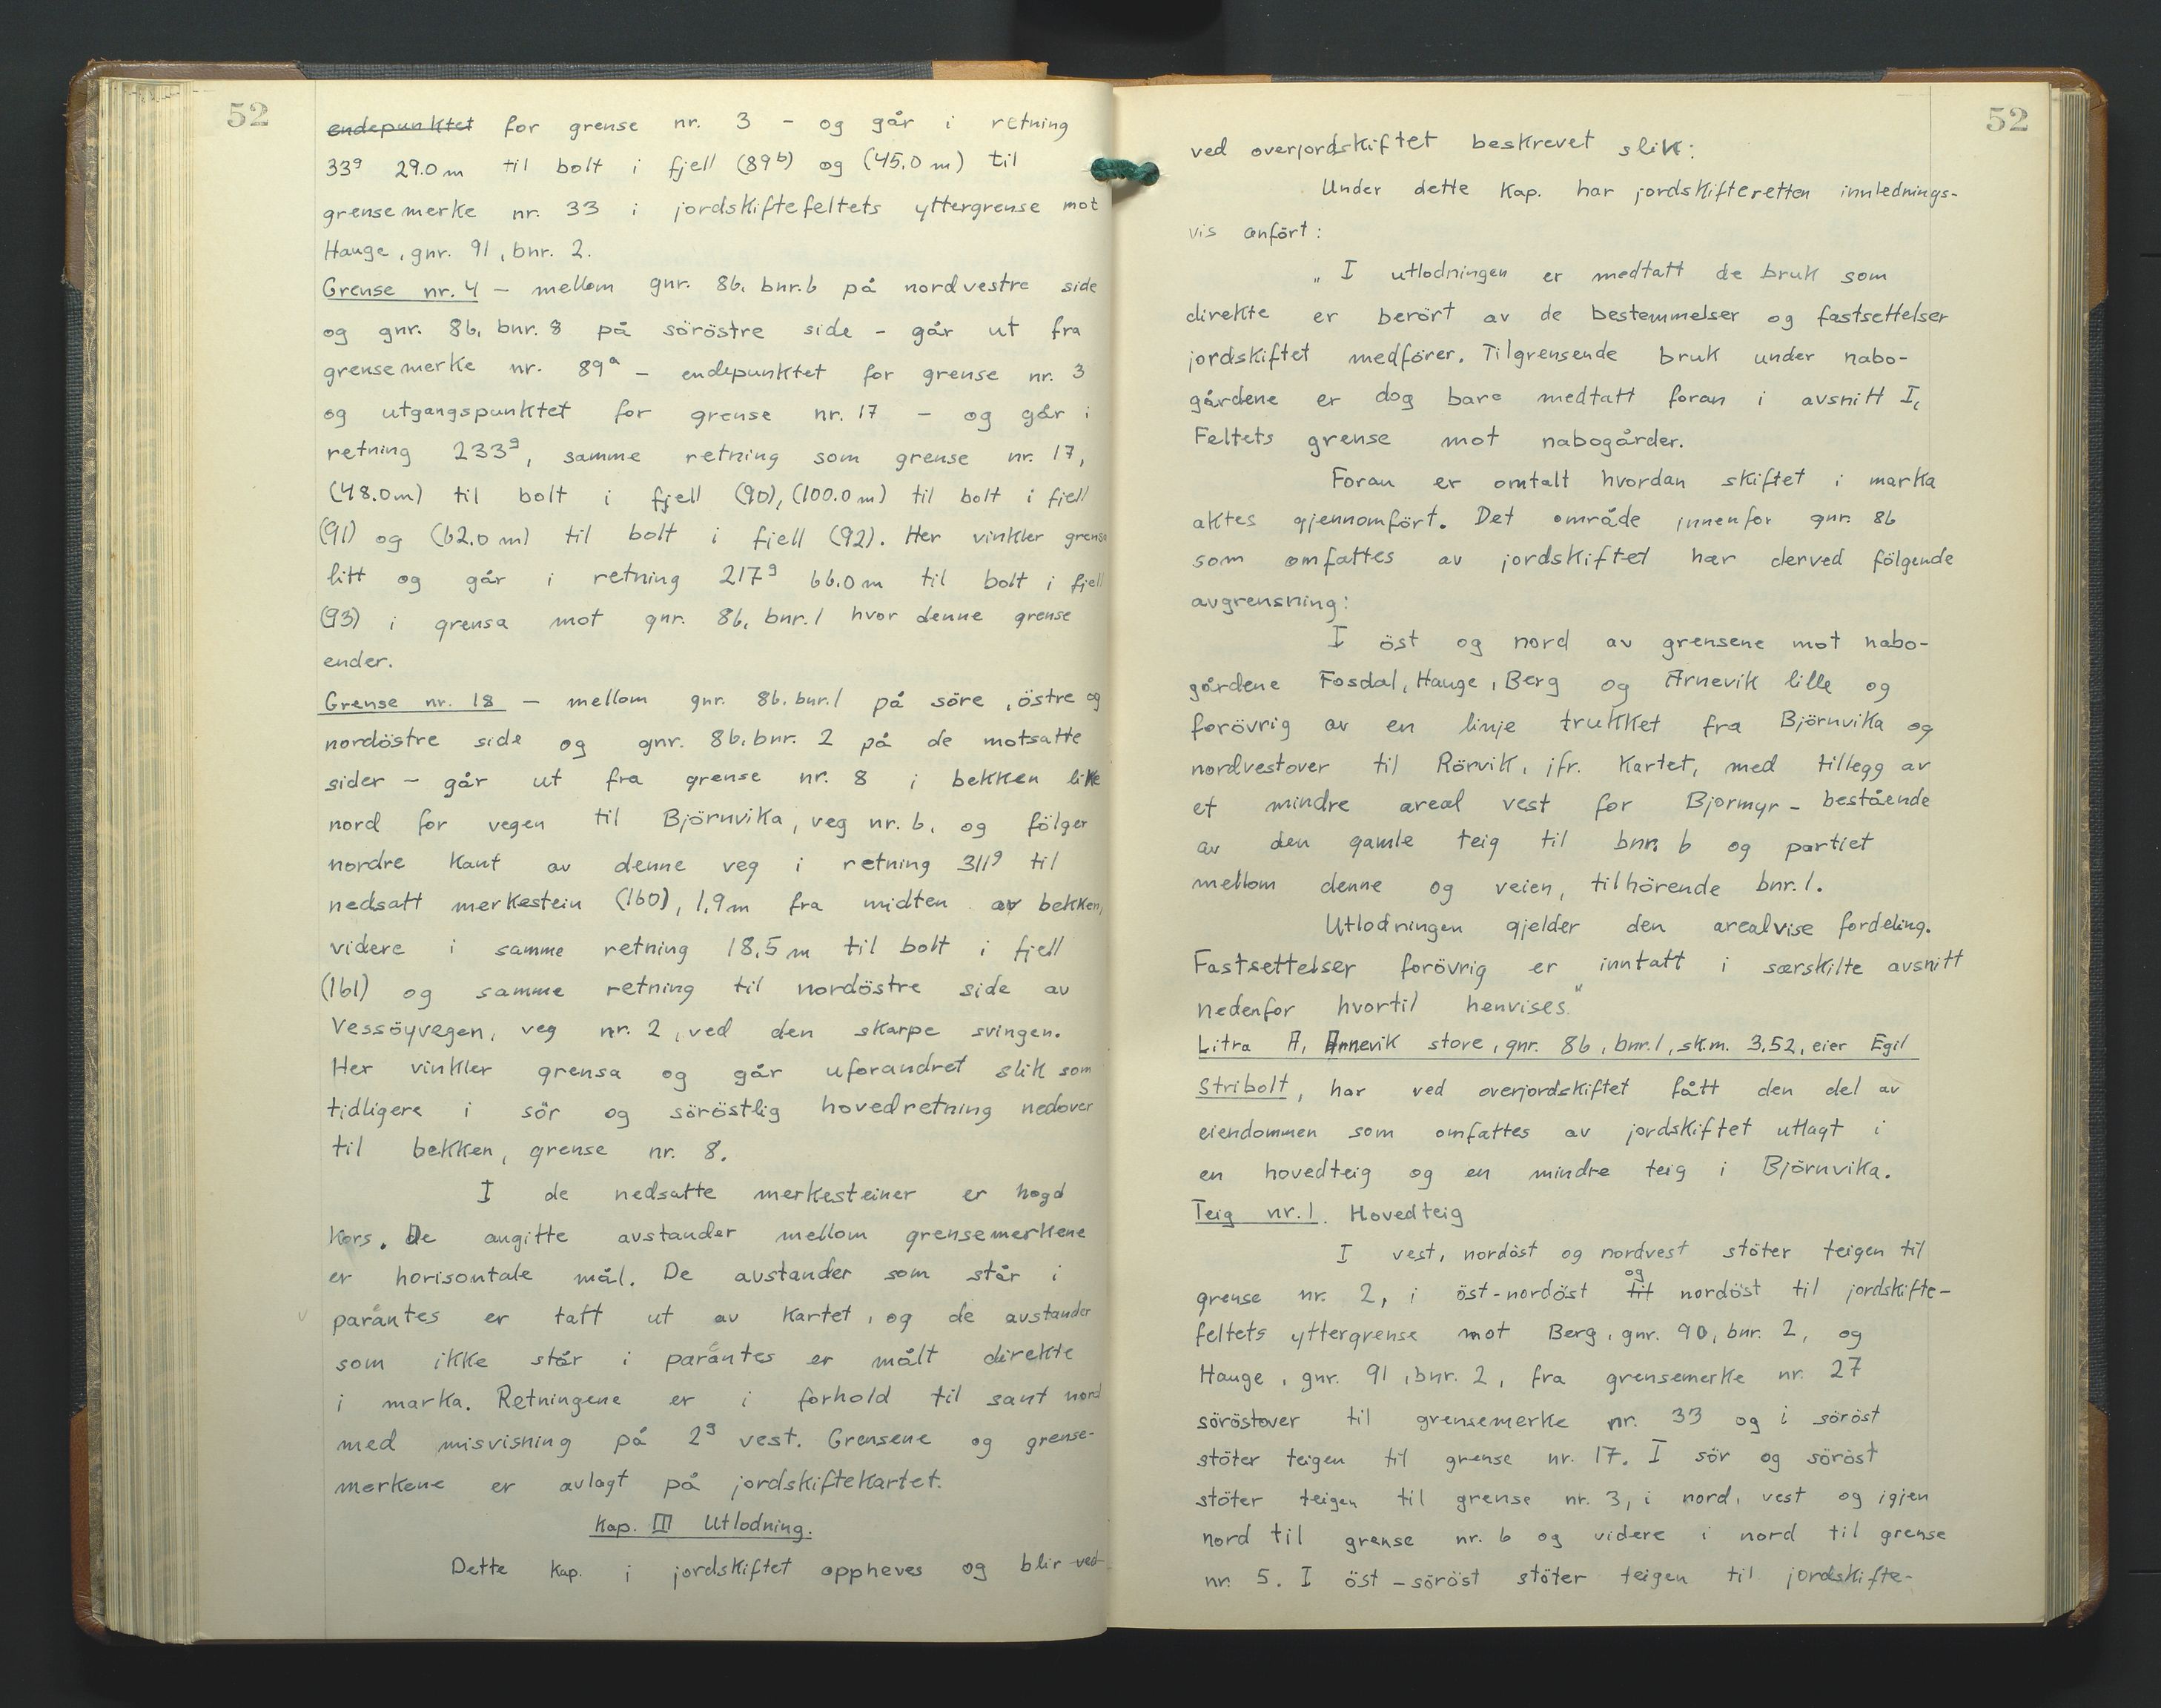 52
endepunktet for grense nr. 3 - og går i retning
33g 29.0 m til bolt i fjell (89b) og (45.0 m) til
grensemerke nr. 33 i jordskiftefeltets yttergrense mot
Hauge, gnr. 91, bnr. 2.
Grense nr. 4 - mellom gnr. 86, bnr. 6 på nordvestre side
og gnr. 86, bnr. 8 på söröstre side - går ut fra
grensemerke nr. 89a - endepunktet for grense nr. 3
og utgangspunktet for grense nr. 17 - og går i
retning 233g, samme retning som grense nr. 17,
(48.0m) til bolt i fjell (90), (100.0 m) til bolt i fjell
(91) og (62.0 m) til bolt i fjell (92). Her vinkler grensa
litt og går i retning 217g 66.0 m til bolt i fjell
(93) i grensa mot gnr. 86, bnr. 1 hvor denne grense
ender.
Grense nr. 18 - mellom gnr. 86. bnr. 1 på söre, östre og
nordöstre side og gnr. 86. bnr. 2 på de motsatte
sider - går ut fra grense nr. 8 i bekken like
nord for vegen til Björnvika, veg nr. 6, og fölger
nordre kant av denne veg i retning 311g til
nedsatt merkestein (160), 1.9 m fra midten av bekken,
videre i samme retning 18.5 m til bolt i fjell
(161) og samme retning til nordöstre side av
Vessöyvegen, veg nr. 2, ved den skarpe svingen.
Her vinkler grensa og går uforandret slik som
tidligere i sör og söröstlig hovedretning nedover
til bekken, grense nr. 8.
I de nedsatte merkesteiner er hogd
kors. De angitte avstander mellom grensemerkene
er horisontale mål. De avstander som står i
parantes er tatt ut av kartet, og de avstander
som ikke står i parantes er målt direkte
i marka. Retningene er i forhold til sant nord
med misvisning på 2g vest. Grensene og grense-
merkene er avlagt på jordskiftekartet.
Kap. III Utlodning.
Dette kap. i jordskiftet oppheves og blir ved
52
ved overjordskiftet beskrevet slik:
Under dette kap. har jordskifteretten innlednings-
vis anfört:
"I utlodningen er medtatt de bruk som
direkte er berört av de bestemmelser og fastsettelser
jordskiftet medförer. Tilgrensende bruk under nabo-
gårdene er dog bare medtatt foran i avsnitt I,
Feltets grense mot nabogårder.
Foran er omtalt hvordan skiftet i marka
aktes gjennomfört. Det område innenfor gnr. 86
som omfattes av jordskiftet har derved fölgende
avgrensning:
I öst og nord av grensene mot nabo-
gårdene Fosdal, Hauge, Berg og Arnevik lille og
forövrig av en linje trukket fra Björnvika og
nordvestover til Rörvik, jfr. kartet, med tillegg av
et mindre areal vest for Bjormyr - bestående
av den gamle teig til bnr. 6 og partiet
mellom denne og veien, tilhörende bnr. 1.
Utlodningen gjelder den arealvise fordeling.
Fastsettelser forövrig er inntatt i særskilte avsnitt
nedenfor hvortil henvises."
Litra A, Arnevik store, gnr. 86, bnr. 1, sk.m. 3,52, eier Egil
Stribolt, har ved overjordskiftet fått den del av
eiendommen som omfattes av jordskiftet utlagt i
en hovedteig og en mindre teig i Björnvika.
Teig nr. 1. Hovedteig
I vest, nordöst og nordvest stöter teigen til
og
grense nr. 2, i öst-nordöst til nordöst til jordskifte-
feltets yttergrense mot Berg, gnr. 90, bnr. 2, og
Hauge, gnr. 91, bnr. 2, fra grensemerke nr. 27
söröstover til grensemerke nr. 33 og i söröst
stöter teigen til grense nr. 17. I sör og söröst
stöter teigen til grense nr. 3, i nord, vest og igjen
nord til grense nr. 6 og videre i nord til grense
nr. 5. I öst - söröst stöter teigen til jordskifte-